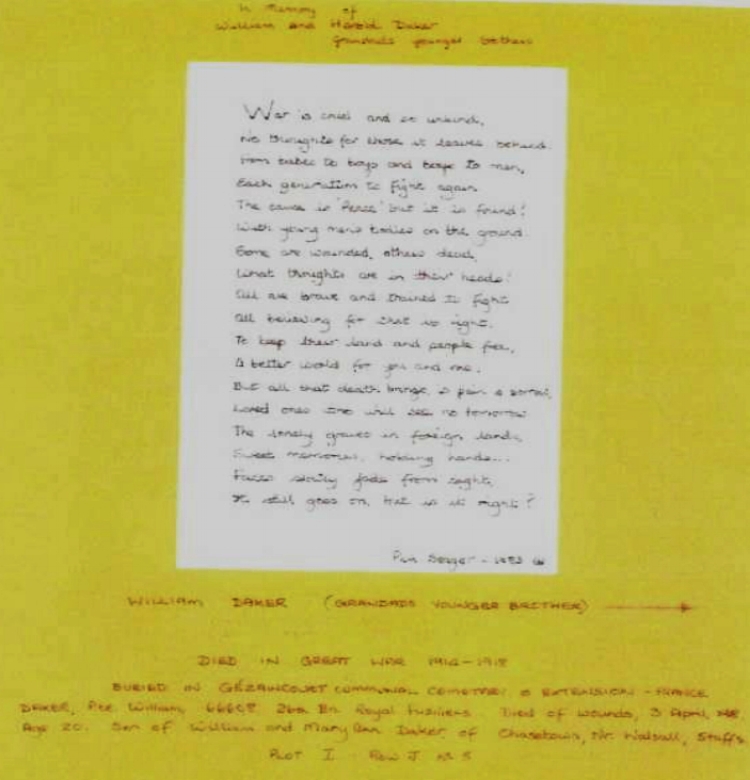 In Memory of
William and Harold Daker
Grandad's younger brothers
War is cruel and so unkind,
No thoughts for those it leaves behind.
From babes to boys and boys to men,
Each generation to fight again
The cause is 'Peace' but it is found!
With young men's bodies on the ground.
Some are wounded, others dead,
What thoughts are in their heads!
All are brave and trained to fight
All believing for that is right.
To keep their land and people free,
A better world for you and me.
But all that death brings, is pain & sorrow,
Loved ones who will see no tomorrow.
The lonely graves in foreign lands,
Sweet memories, holding hands...
Faces slowly fade from sight,
It still goes on, but is it right?
Pam
WILLIAM DAKER (GRANDADS YOUNGER BROTHER)
DIED IN GREAT WAR 1914-1918
BURIED IN GÉZAINCOURT COMMUNAL CEMETERY & EXTENSION - FRANCE
DAKER, Pte. William, Bn. Royal Fusiliers. Died of wounds, 3 April,
Age 20. Son of William and Mary Ann Daker, of Chasetown, Nr. Walsall, Staffs
PLOT I ROW J